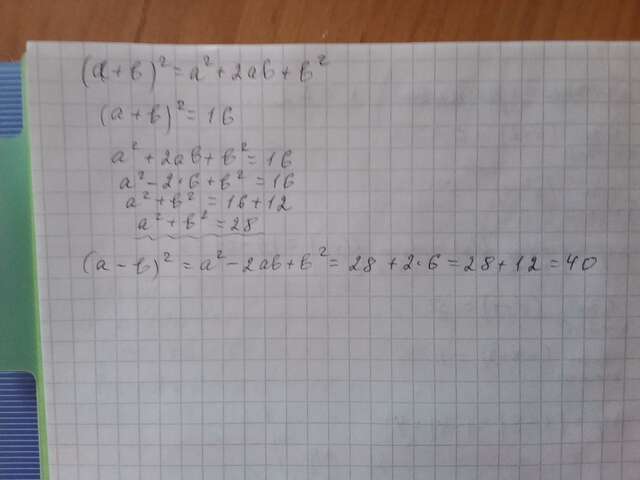 (a+b)² = a² + 2ab + b²
(a+b)² = 16
a² + 2ab + b² = 16
a² - 2·6 + b² = 16
a² + b² = 16 + 12
a² + b² = 28
(a - b)² = a² - 2ab + b² = 28 + 2·6 = 28 + 12 = 40